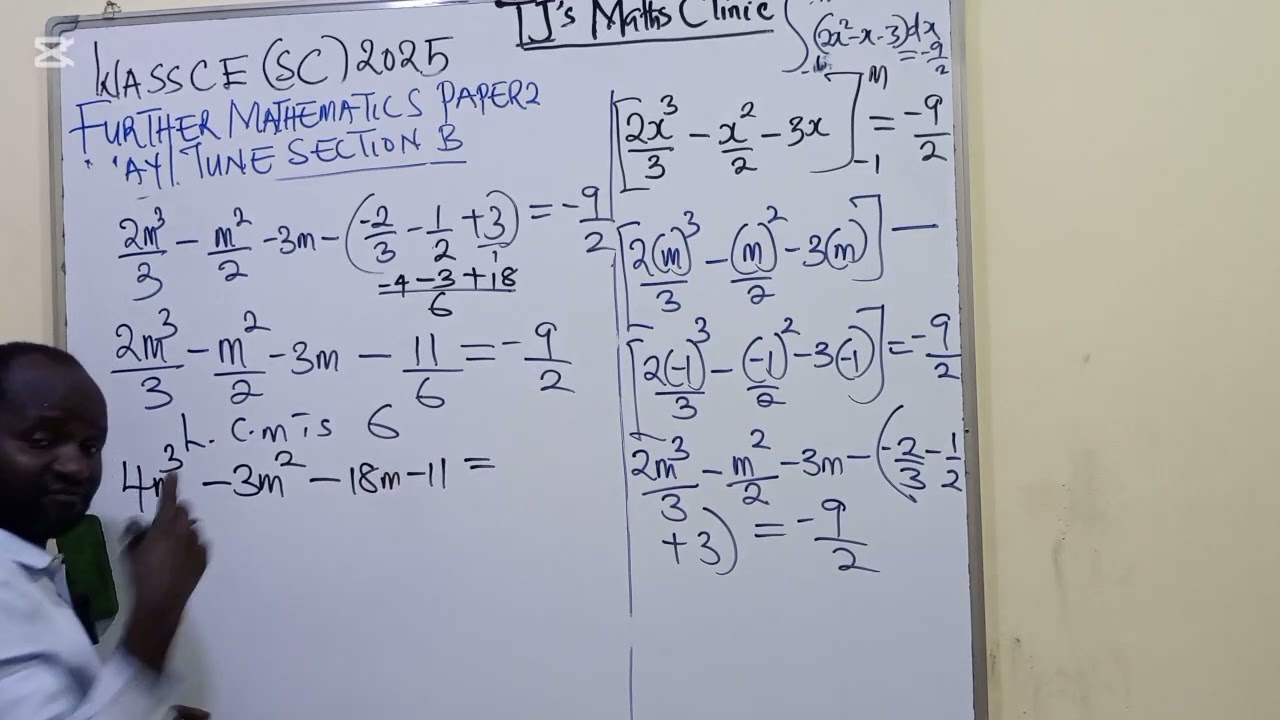 IJ's Maths Clinic
WASSCE (SC) 2025
FURTHER MATHEMATICS PAPER 2
TUNE SECTION B
2m³/3 - m²/2 - 3m - (-2/3 - 1/2 + 3/1) = -9/2
-4 - 3 + 18 / 6
2m³/3 - m²/2 - 3m - 11/6 = -9/2
L.C.M is 6
4m³ - 3m² - 18m - 11 =
∫ (2x² - x - 3)dx = -9/2
[2x³/3 - x²/2 - 3x]ᵐ₋₁ = -9/2
[2(m)³/3 - (m)²/2 - 3(m)] -
[2(-1)³/3 - (-1)²/2 - 3(-1)] = -9/2
2m³/3 - m²/2 - 3m - (-2/3 - 1/2
+ 3) = -9/2